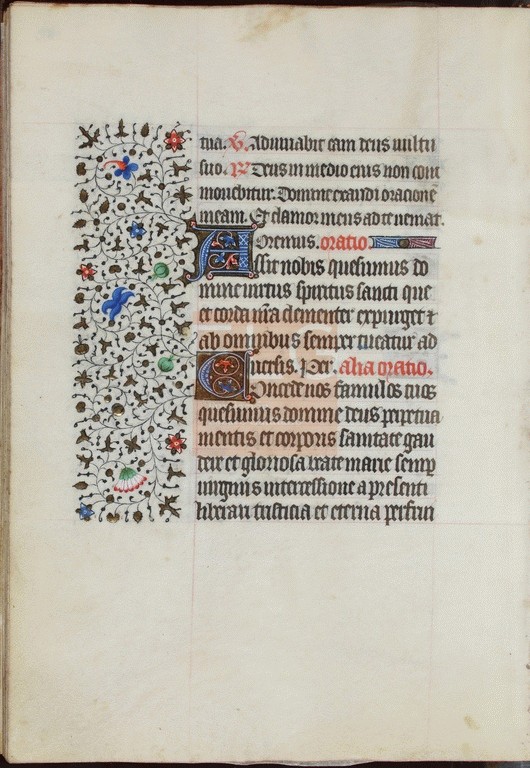 tua. V. Adiuuabit eam deus uultu
suo. R. Deus in medio eius non com
mouebitur. Domine exaudi oracionē
meam. Et clamor meus ad te ueniat.
Oremus. oratio
Assit nobis quesumus do
mine uirtus spiritus sancti que
et corda nr̄a clementer expurget ⁊
ab omnibus semper tueatur ad
uersis. Per. alia oratio.
Concede nos famulos tuos
quesumus domine deus perpetua
mentis et corporis sanitate gau
dere et gloriosa beate marie semp
uirginis intercessione a presenti
liberari tristicia et eterna perfrui